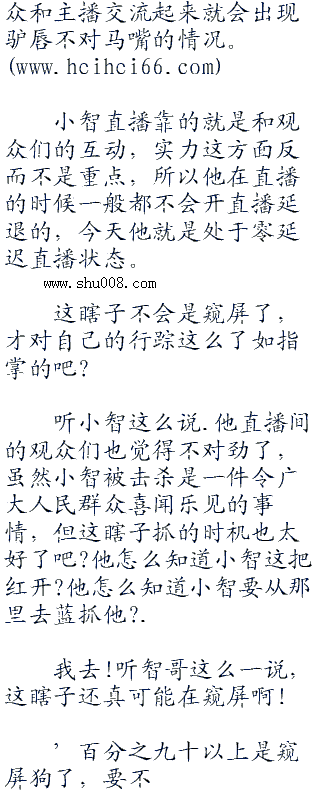 众和主播交流起来就会出现
驴唇不对马嘴的情况。
(www.hcihci66.com)
小智直播靠的就是和观
众们的互动，实力这方面反
而不是重点，所以他在直播
的时候一般都不会开直播延
退的，今天他就是处于零延
迟直播状态。
www.shu008.com
这瞎子不会是窥屏了，
才对自己的行踪这么了如指
掌的吧?
听小智这么说.他直播间
的观众们也觉得不对劲了，
虽然小智被击杀是一件令广
大人民群众喜闻乐见的事
情，但这瞎子抓的时机也太
好了吧?他怎么知道小智这把
红开?他怎么知道小智要从那
里去蓝抓他?.
我去!听智哥这么一说，
这瞎子还真可能在窥屏啊!
’百分之九十以上是窥
屏狗了，要不